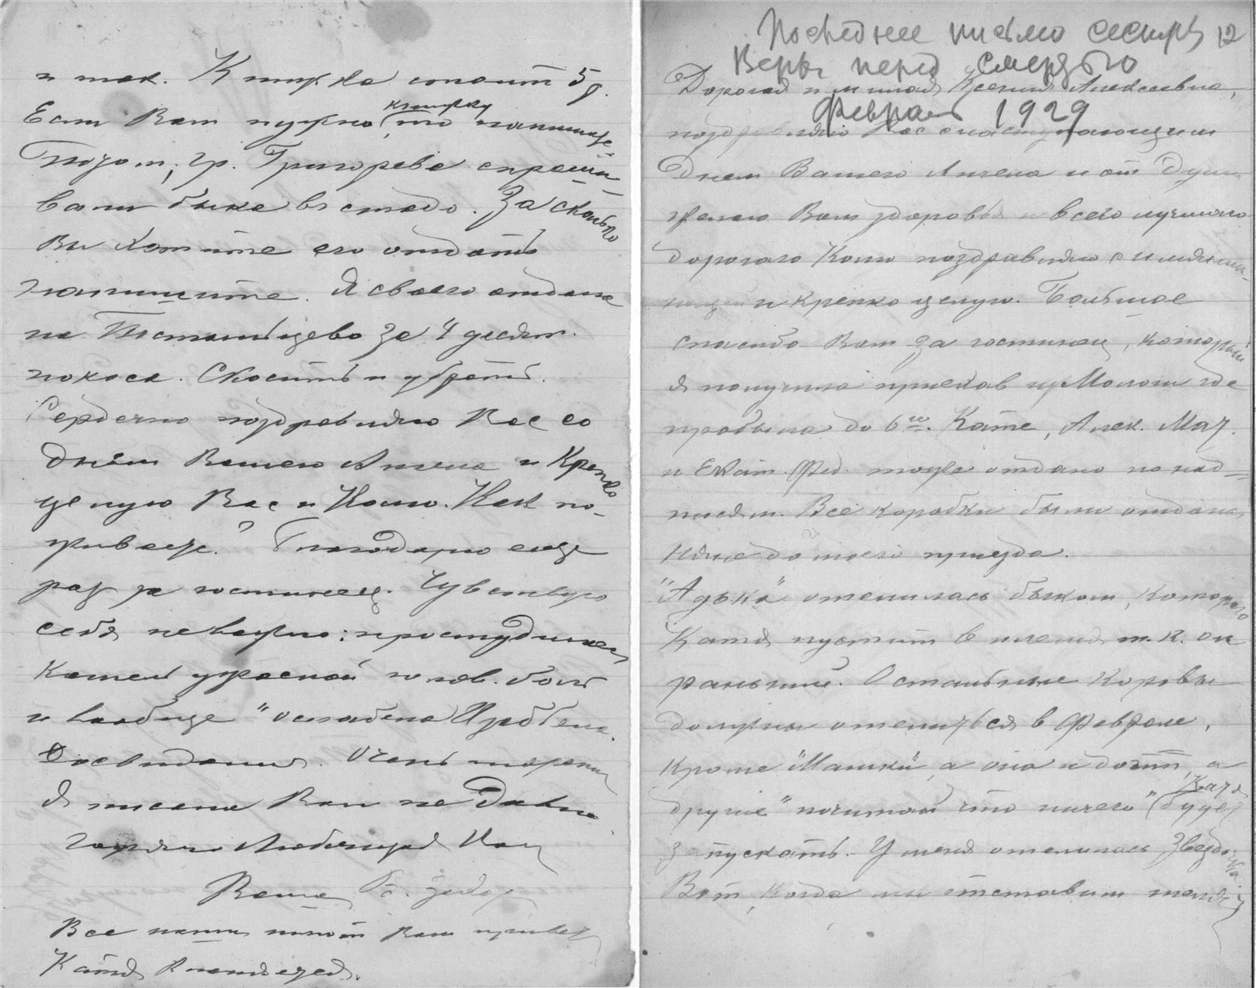 и так. Книжка стоит 5 р.
Если Вам нужно книжку, то напишите.
Потом, гр. Григорьева спраши-
вали быка в стадо. За сколько
Вы хотите его отдать
напишите. Я своего отдала
на за 4 десят.
покоса. Скосить и убрать.
Сердечно поздравляю Вас со
днём Вашего Ангела и крепко
целую Вас и Колю. Как по-
живаете? Благодарю еще
раз за гостинец. Чувствую
себя неважно: простудилась
кашель ужасной голов. боль
и вообще "ослабела
Досвидания. Очень
Я писала Вам не давно
горячо Любящая Вас
Ваша
Все наши шлют Вам привет
Катя
Последнее письмо сестры 12
Веры перед смертью
Февраль 1929
Дорогая и милая Ксения Алексеевна,
поздравляю Вас с наступающим
Днем Вашего Ангела и от души
желаю Вам здоровья и всего лучшего
дорогого Колю поздравляю с имянин-
ницей и крепко целую. Большое
спасибо Вам за гостинец, который
я получила приехав из Мологи где
пробыла до 6го. Кате, Алек. Мат.
и Екат. Фед. тоже отдано по над-
писям. Все коробки были отданы
Катя до моего приезда.
"Адька" отелилась быком, которого
Катя пустит в племя т. к. он
раньший. Остальные коровы
должны отелиться в Феврале,
кроме "Машки", а она и доит, а
другие "почитай что ничего" (Катя будет
запускать. У меня отелилась Звездочка
Вот, когда мы отставим теля